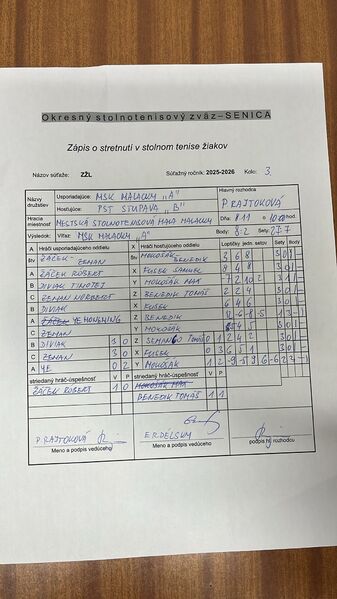 Okresný stolnotenisový zväz–SENICA
Zápis o stretnutí v stolnom tenise žiakov
Názov súťaže: ZŽL Súťažný ročník: 2025-2026 Kolo: 3.
Názvy družstiev Usporiadajúce: MŠK MALACKY "A" Hlavný rozhodca
Hosťujúce: PST STUPAVA "B" P. RAJTOKOVÁ
Hracia miestnosť MESTSKÁ STOLNOTENISOVÁ HALA MALACKY Dňa: 8.11 o 10.00 hod.
Výsledok: Víťaz: MŠK MALACKY "A" Body: 8:2 Sety: 27:7
A Hráči usporiadajúceho oddielu X Hráči hosťujúceho oddielu Loptičky jedn. setov Sety Body
štv ŽÁČEK- ZEMAN štv MOKOŠÁK- BENEDIK 3 6 8 3 0 1
A ŽÁČEK RÓBERT X FUSEK SAMUEL 8 4 8 3 0 1
B DIVIAK TIMOTEJ Y MOKOŠÁK MAX 7 2 10 2 3 1 1
C ZEMAN NORBERT Z BENEDIK TOMÁŠ 2 2 4 3 0 1
B DIVIAK X FUSEK 6 4 6 3 0 1
A ŽÁČEK YE HONGNING Z BENEDIK 1 3
C ZEMAN Y MOKOŠÁK 4 5 3 0 1
B DIVIAK 3 0 Z 0 1 2 4 2 3 0 1
C ZEMAN 3 0 X FUSEK 0 3 6 5 1 3 0 1
A YE 0 2 Y MOKOŠÁK 1 2
striedaný hráč-úspešnosť V P striedaný hráč-úspešnosť V P
ŽÁČEK RÓBERT 1 0 MOKOŠÁK MAX
BENEDIK TOMÁŠ 1 1
P. RAJTOKOVÁ ERDÉLSKY
Meno a podpis vedúceho Meno a podpis vedúceho podpis hl. rozhodcu